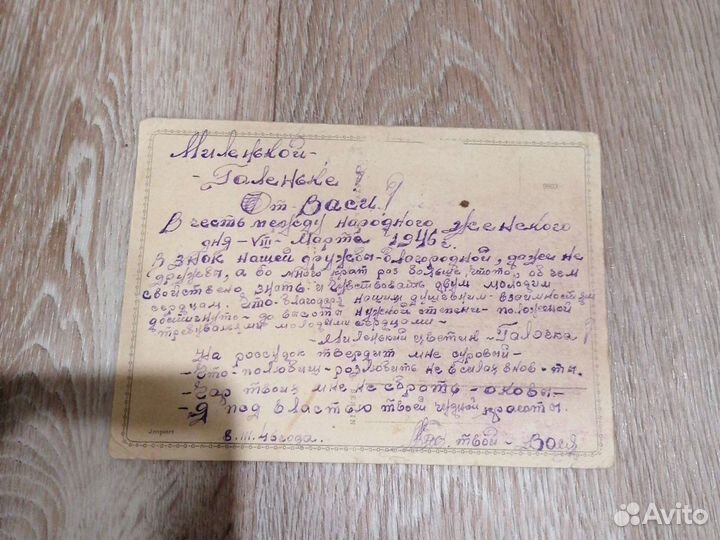 Миленькой-
-Галеньке!
От-Васи!
В честь между народного женского
дня-VIII-Марта 1946 г.
В знок нашей дружбы-благородной, даже не
дружбы, а во много крат роз больше, что-то, о чем
свойствено знать и чувствовать двум молодым
сердцам. Что-благодаря нашим душевным-взаимностям
достигнуто-до высоты нужной степени-положеной
требуваньями молодыми сердцами-
-Миленький цветик-Галочка!
-На россудок твердит мне суровый-
-Что-половиш-розлюбить не в силах вновь-ты.
-Чар твоих мне не сбрость-оковы-
-Я под властью твоей чудной красоты.
8.III.46 года.. твой-Вася
Import
Avito